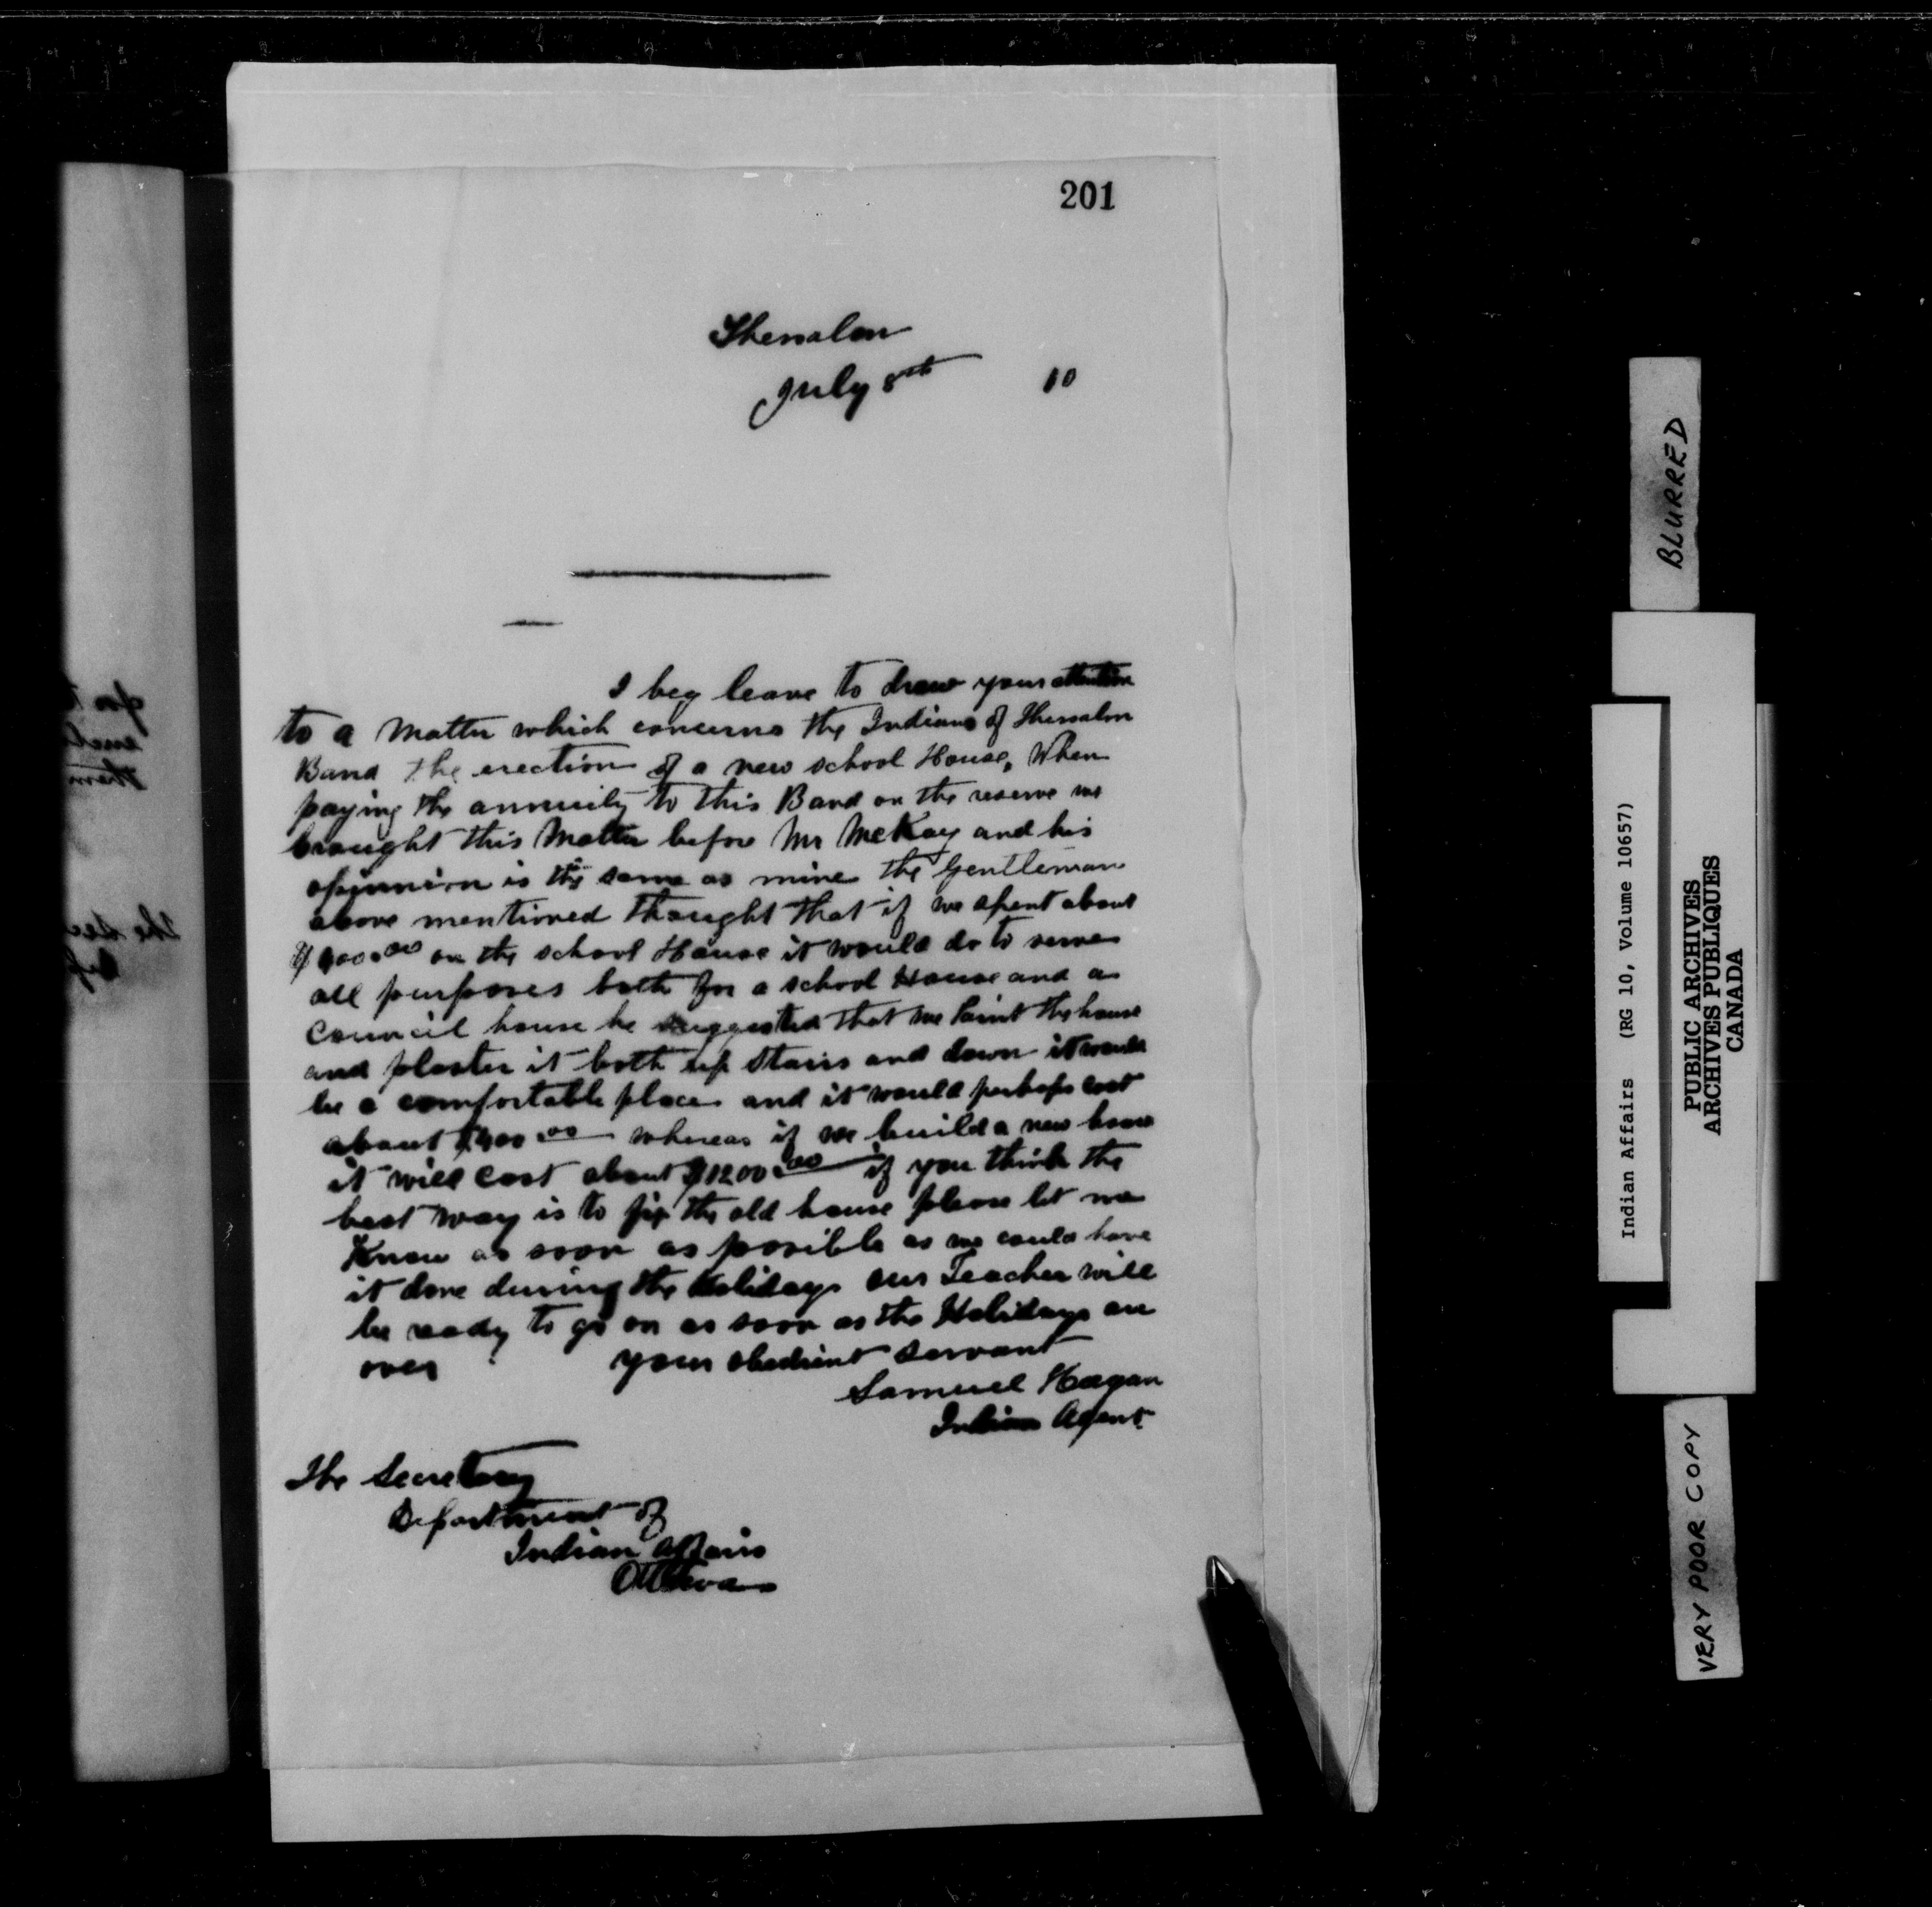 201
Thessalon
July 8th 10
I beg leave to draw your attention
to a Matter which concerns the Indians of Thessalon
Band the erection of a new school House, When
paying the annuity to this Band on the reserve we
brought this Matter before Mr McKay and his
opinnion is the same as mine the Gentleman
above mentioned thought that if we spent about
on the school House it would do to serve
all purposes both for a school House and a
Council house he suggested that we Paint the house
and plaster it both up stairs and down it would
be a comfortable place and it would perhaps cost
about $400.00 whereas if we build a new house
it will cost about $1200.00 if you think the
best way is to fix the old house please let me
Know as soon as possible as we could have
it done during the Holidays our Teacher will
be ready to go on as soon as the Holidays are
over your obedient servant
Samuel Hagan
Indian Agent.
The Secretary
Department of
Indian Affairs
Ottawa
BLURRED
Indian Affairs (RG 10, Volume 10657)
PUBLIC ARCHIVES
ARCHIVES PUBLIQUES
CANADA
VERY POOR COPY